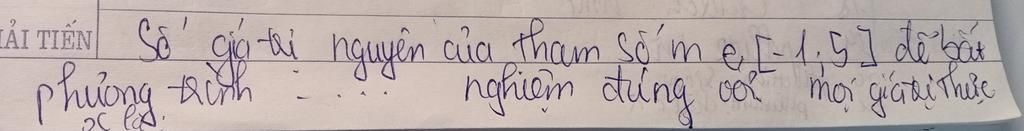 ẢI TIẾN Số giá trị nguyên của tham số m ∈ [-1; 5] để bất
phương trình ..... nghiệm đúng với mọi giá trị thực
x là.